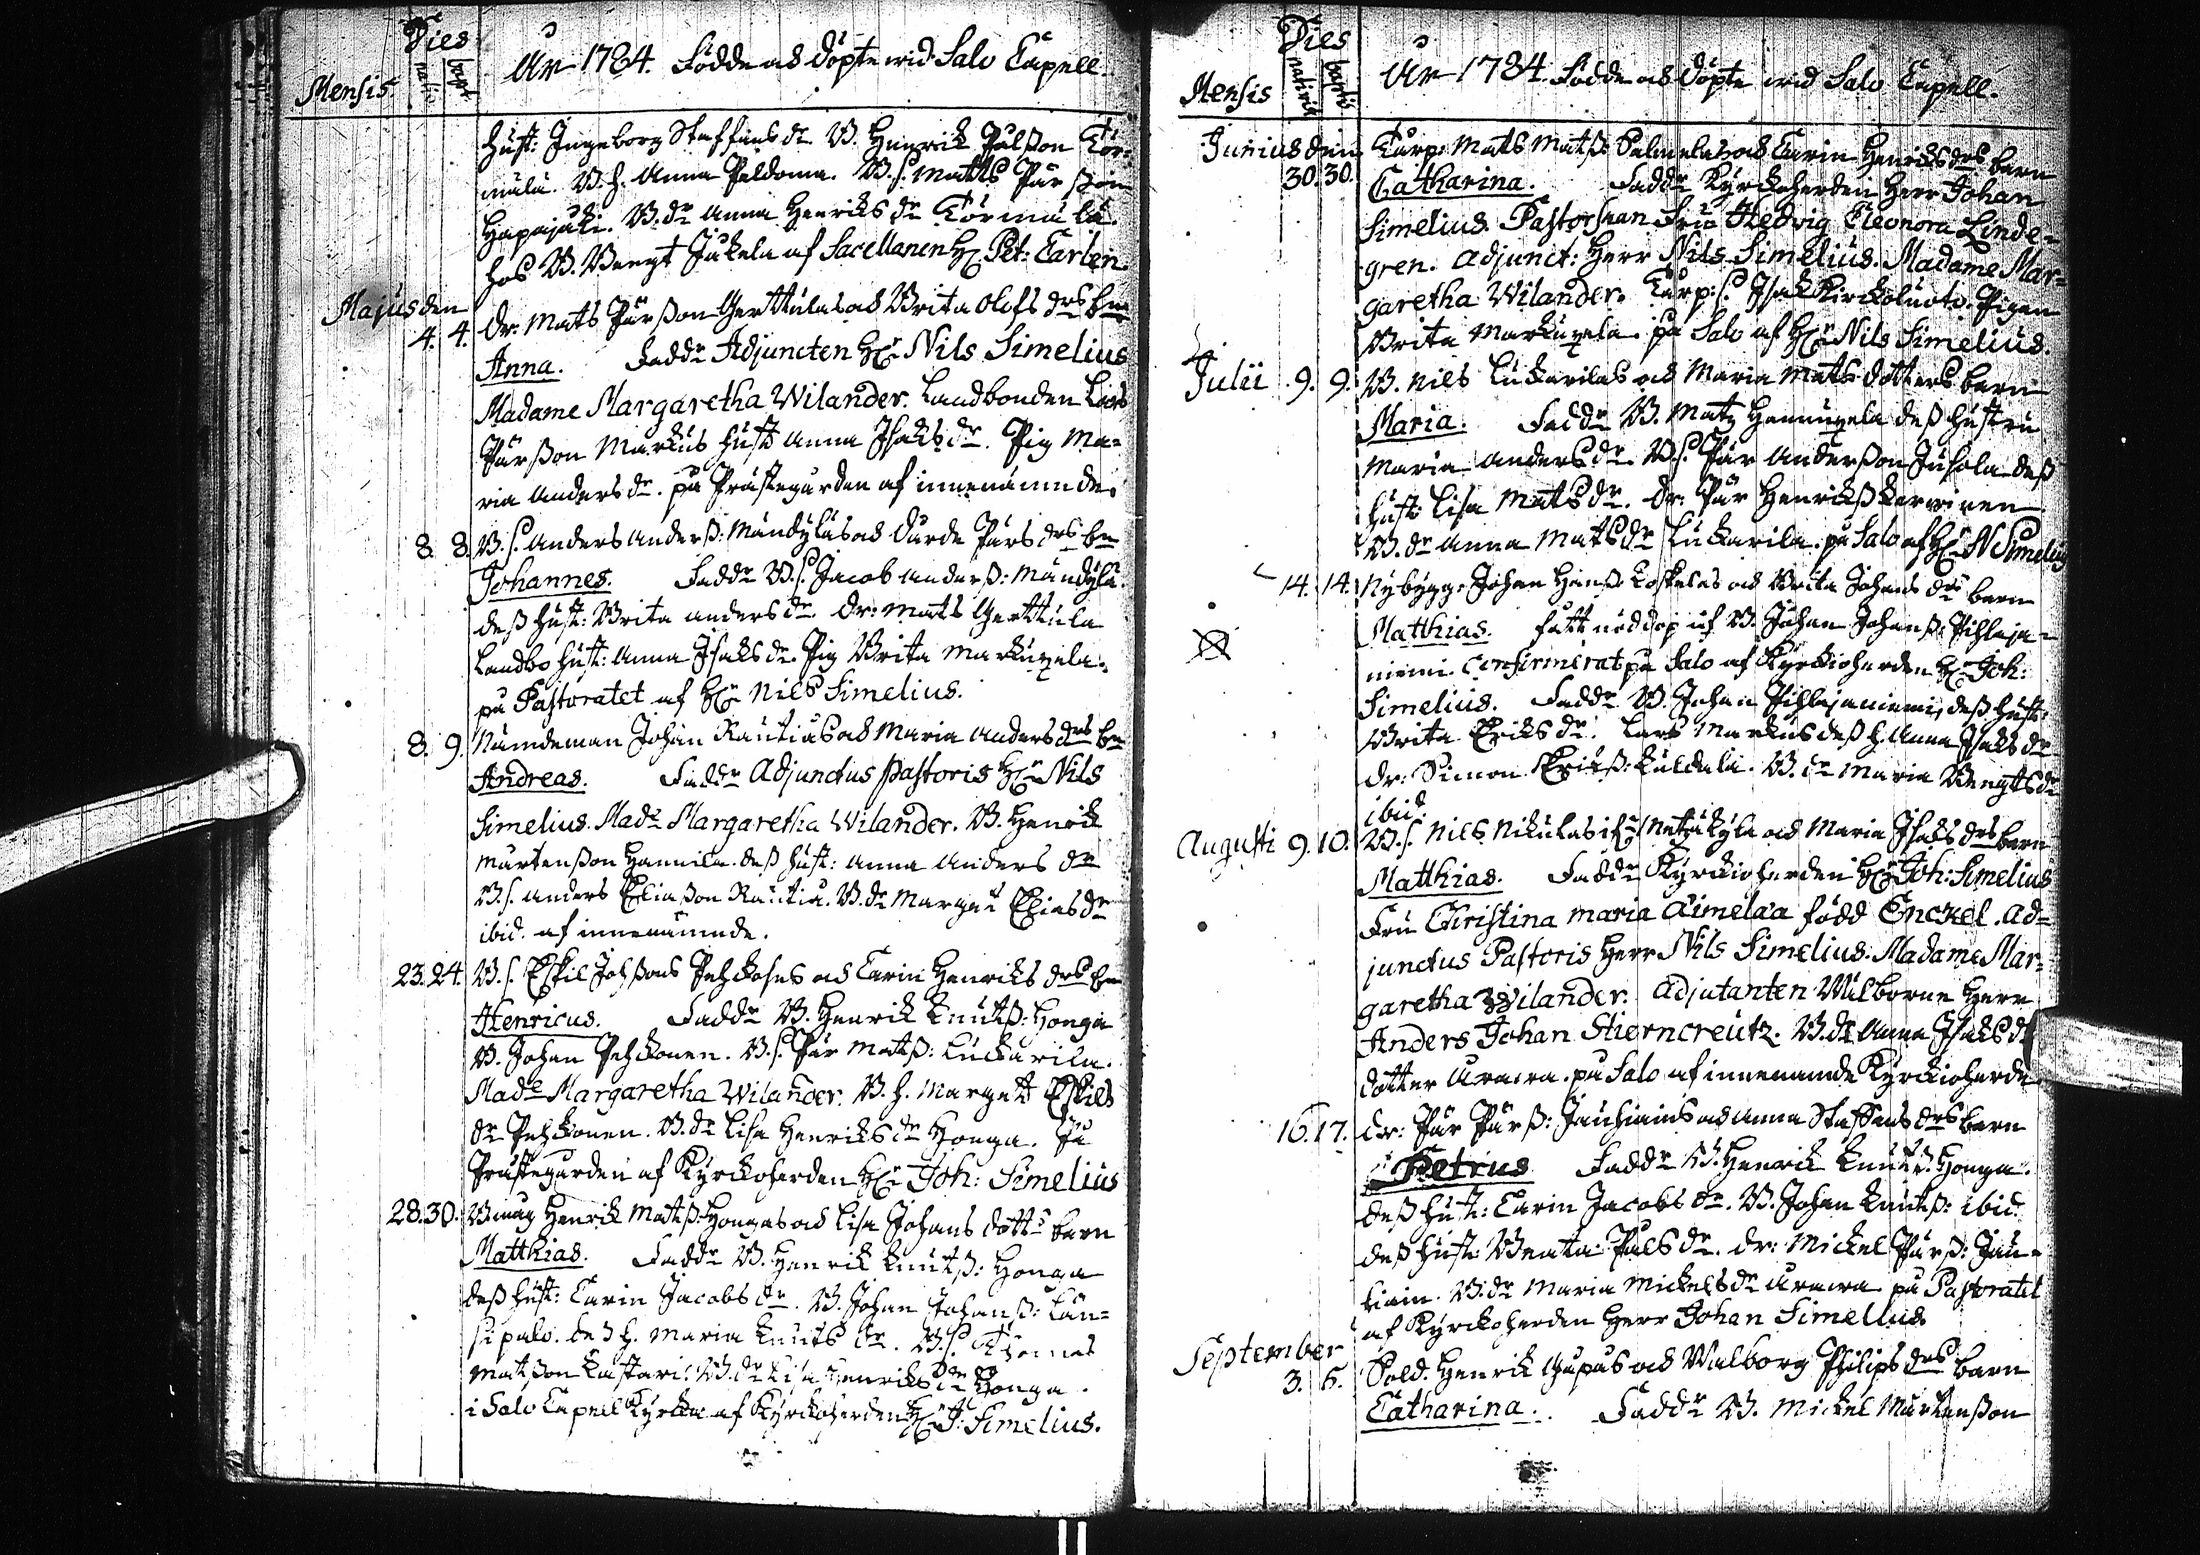 Dies
Mensis. nativ. bapt. År 1784. Födde och döpte wid Salo Capell.
hust: Ingeborg Staffans dr B. Henrik Pålsson Tör-
mälä. B. h. Anna Peldoma. B. s. Matts Pärsson
Hapajäki. B. dr Anna Henriks dr Törmälä
hos B. Bengt Jukela af Sacellanen Hr Pet: Carlen
Majus den
4. 4. dr: Mats Pärsson Gerttulas och Brita Olofs drs bn
Anna. Faddr Adjuncten Hr Nils Simelius
Madame Margaretha Wilander. Landbonden Lars
Pärsson Markus hust Anna Isaks dr. Pig Ma-
ria Anders dr. på Prästegården af innenämnde.
8. 8. B. s. Anders Anderss: Mändyläs och Pärs drs bn
Johannes. Faddr B. s. Jacob Anderss: Mändylä.
dess hust: Brita Anders dr dr: Mats Gerttula
Landbo hust: Anna Isaks dr. Pig Brita Markuxela.
på Pastoratet af Hr Nils Simelius.
8. 9. Nämdeman Johan Rautias och Maria Anders drs bn
Andreas. Faddr Adjunctus Pastoris Hr Nils
Simelius. Made Margaretha Wilander. B. Henrik
Mårtensson Hannila. dess hust: Anna Anders dr
B. s. Anders Eliasson Rautia. B. dr Marget Elias dr
ibid. af innenämnde.
23. 24. B. s. Eskil Johssons och Carin Henriks drs bn
Henricus. Faddr B. Henrik Knutss: Honga
B. Johan Pehkonen. B. s. Pär Matss: Luckarila.
Made Margaretha Wilander. B. h. Marget Eskils
dr Pehkonen. B. dr Lisa Henriks dr Honga. På
Prästegården af Kyrckoherden Hr Joh: Simelius
28. 30. Henrik Matss: Hongas och Lisa Johans dotts barn
Matthias. Faddr B. Henrik Knutss: Honga
dess hust: Carin Jacobs dr. B. Johan Johanss: Län-
sipalo. dess h. Maria Knuts dr. B. s. Thomas
Matsson Kattari. B. dr Lisa Henriks dr Honga.
i Salo Capell Kyrka af Kyrckoherden Hr J: Simelius.
Dies
Mensis nativit. baptis År 1784 Födde och döpte wid Salo Capell.
Junius den Mats Matss Salmelas och Carin Henricks drs barn
30. 30. Catharina. Faddr Kyrckoherden Herr Johan
Simelius. Pastorskan Fru Hedvig Eleonora Linde-
gren. Adjunct: Herr Nils Simelius. Madame Mar-
garetha Wilander. Isak Kirckoluoto. Pigan
Brita Markuxela. på Salo af Hr Nils Simelius.
Julii 9. 9. B. Nils Luckarilas och Maria Mats dotters barn
Maria. Faddr B. Matz Hannuxela dess hustru
Maria Anders dr. B. s. Pär Andersson Jusola dess
hust: Lisa Mats dr. dr: Pär Henrickss Karwinen
B. dr Anna Mats dr Luckarila. på Salo af Hr N Simelius
14. 14. Nybygg: Johan Hanss Koskelas och Brita Johans drs barn
Matthias. fått nöddop af B. Johan Johanss: Pihlaja-
niemi. Confirmerat på Salo af Kyrckioherden Hr Joh:
Simelius. Faddr B. Johan Pihlajaniemi, dess hust:
Brita Eriks dr. Lars Markus dess h. Anna Isaks dr
dr: Simon Erickss: Kuldala. B. dr Maria Bengts dr
ibid.
Augusti 9. 10. B. s. Nils Nikulas Metzäkylä och Maria Isaks drs barn
Matthias. Faddr Kyrckioherden Hr Joh: Simelius
Fru Christina Maria Aimelaa född Enckel. Ad-
junctus Pastoris Herr Nils Simelius. Madame Mar-
garetha Wilander. Adjutanten Wälborne Herr
Anders Johan Stierncreutz. B. dr Anna Isaks dr
dotter på Salo af innenämnde Kyrckioherde
16. 17. dr: Pär Pärss: Jauhiains och Anna Staffans drs barn
Petrus Faddr B. Henrik Knutss. Honga.
dess hust: Carin Jacobs dr. B. Johan Knutss: ibid.
dess hust: Beata Påls dr. dr: Mickel Pärss: Jau-
hiain. B. dr Maria Mickels dr på Pastoratet
af Kyrckoherden Herr Johan Simelius
September
3. 5. Sold. Henrik och Walborg Philips drs barn
Catharina. Faddr B. Mickel Mårtensson